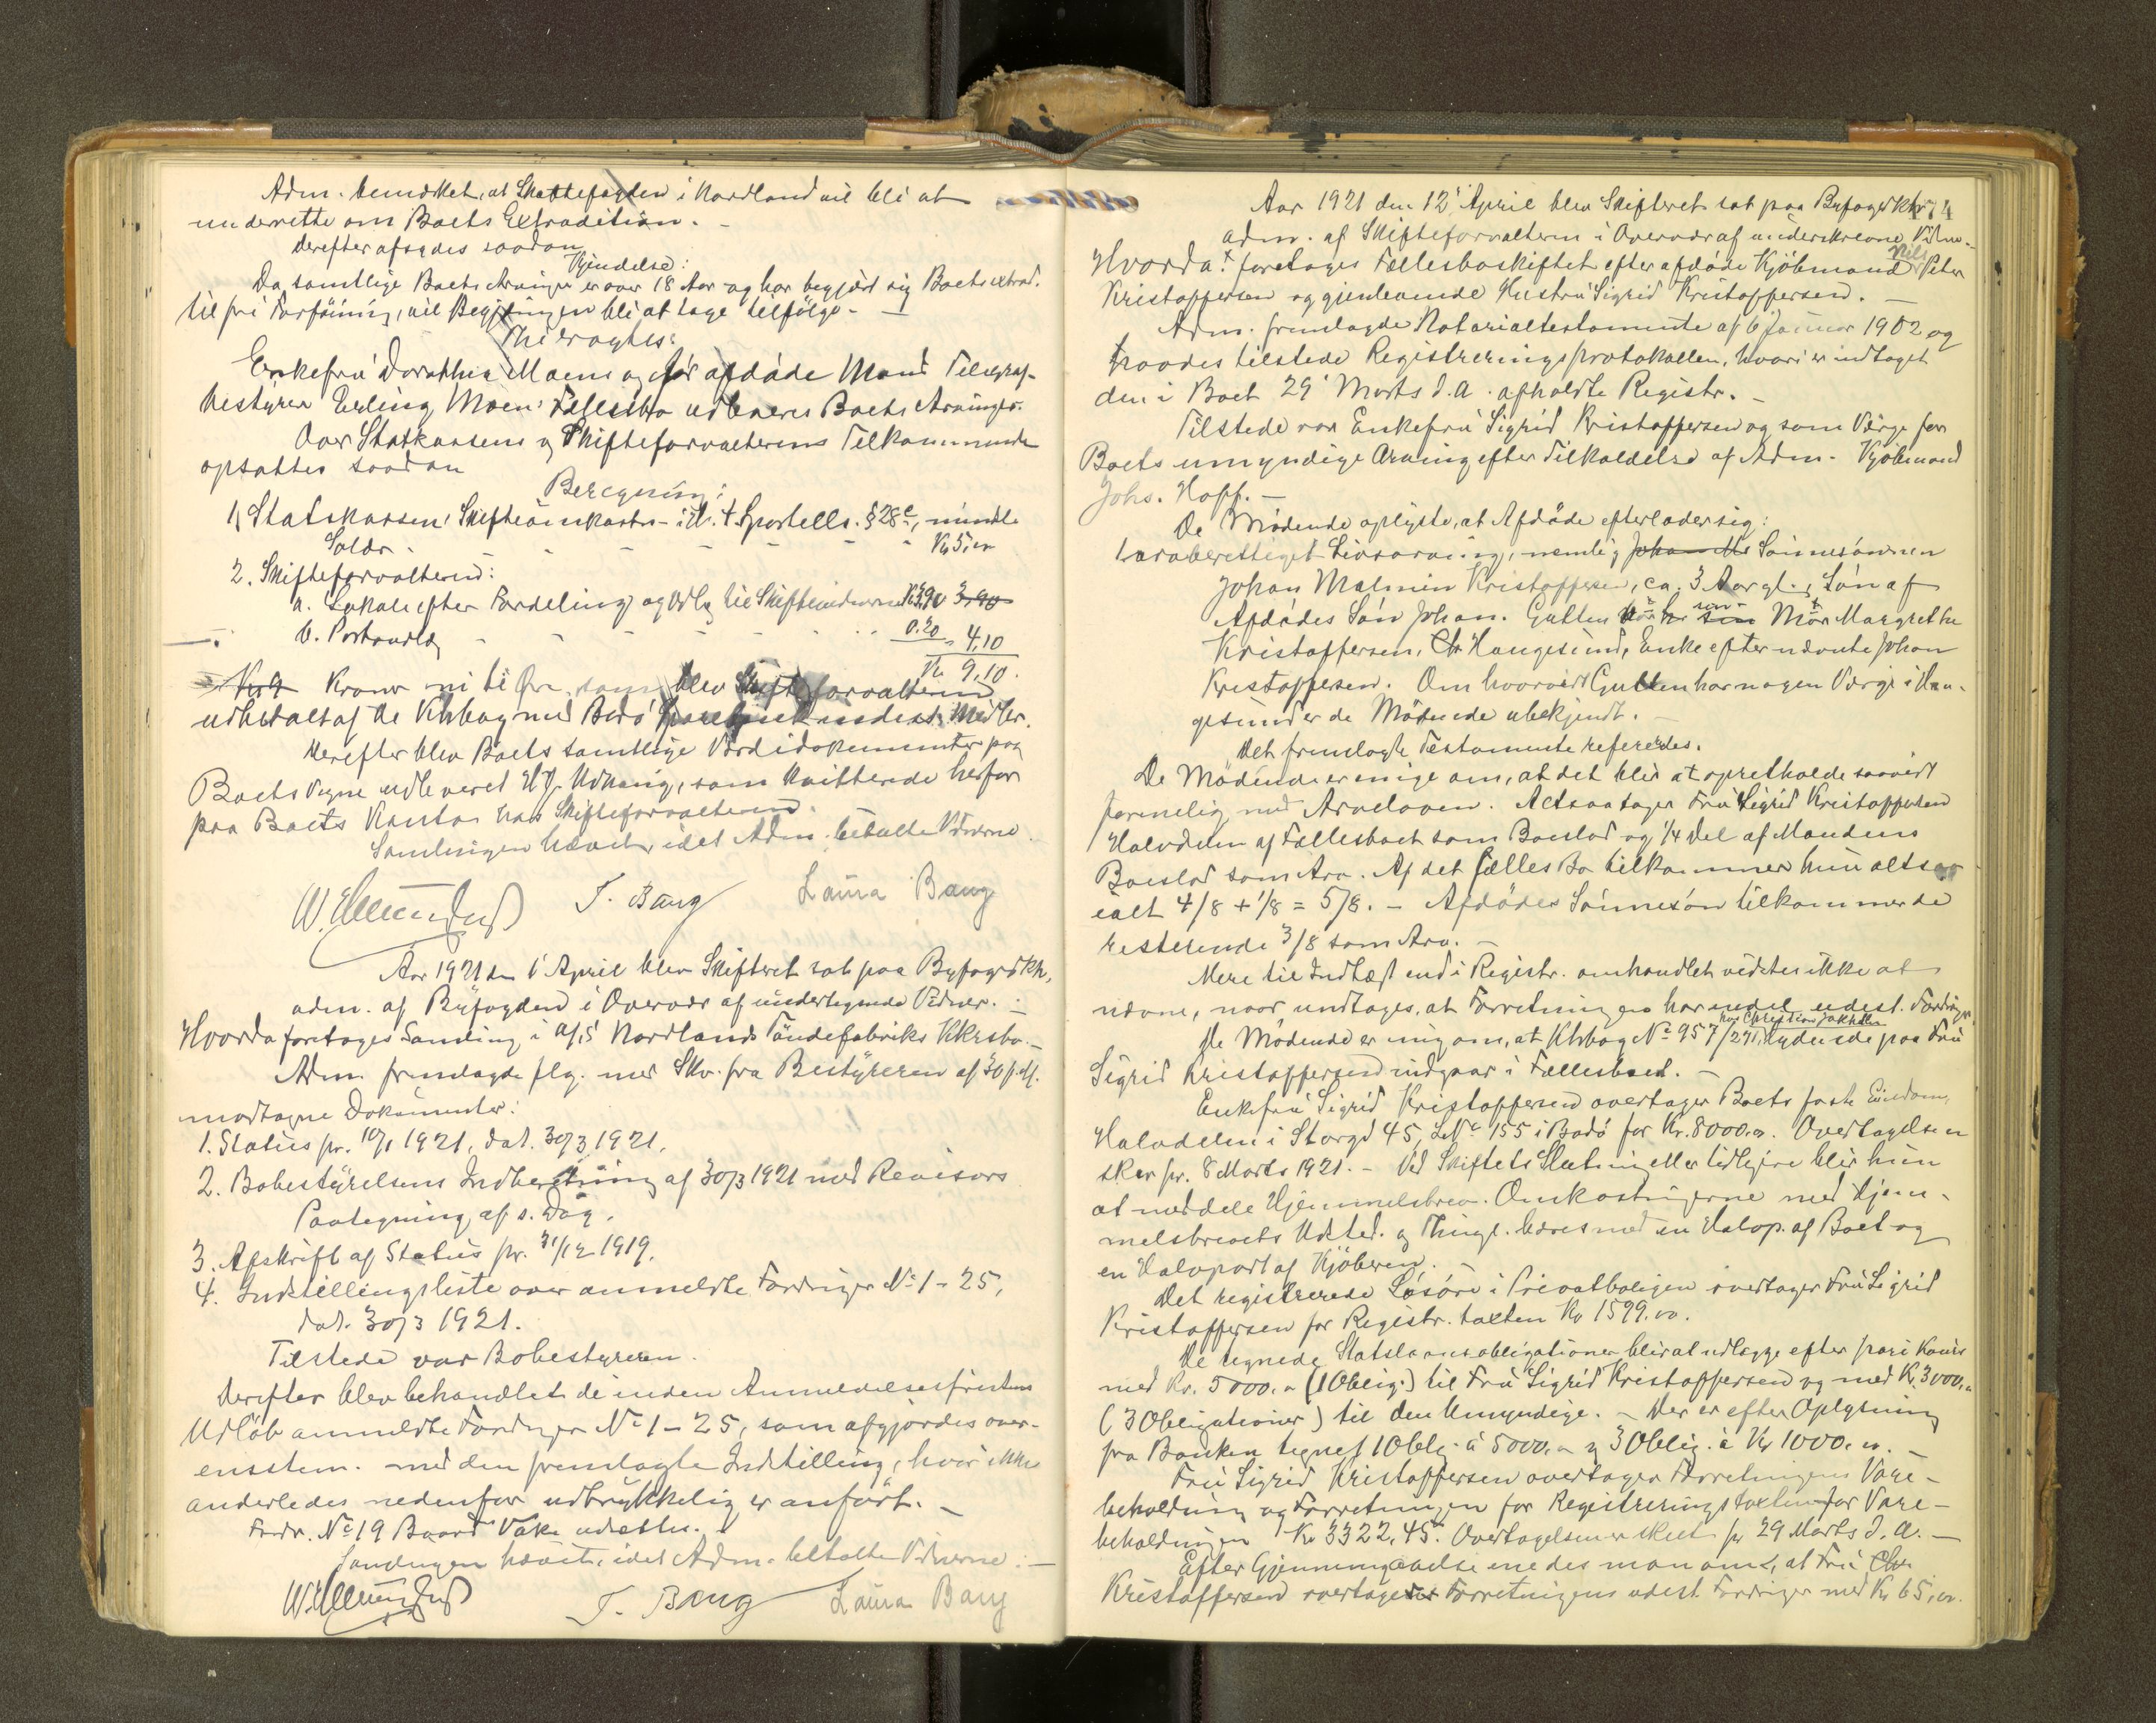 Adm. bemærket, at Skattefogden i Nordland vil bli at
underrette om Boets Extradition. -
Derefter afsagdes saadan
Kjendelse:
Da samtlige Boets Arvinger er over 18 Aar og har begjært sig Boets extrad.
til fri Forføining, vil Begjæringen bli at tage tilfølge. -
Thi eragtes:
Enkefru Dorothea Moens og før afdøde Mand Telegraf-
bestyrer Erling Moens Fællesbo udleveres Boets Arvinger.
Over Statkassens og Skifteforvalterens Tilkommende
opsattes saadan
Beregning:
1, Statskassen: Skifteomkostn. i H. t. Sportells. § 28 e, mindste
Saldr. - - - - - Kr 5,00
2. Skifteforvalteren:
a. Lokale efter Fordeling og Udlæg til Skiftevidnerne Kr 3,90 3,90
b. Portoudlæg - - - 0.20 - 4,10
Kr. 9,10.
Kr 9 Kroner ni ti Øre, som blev Skifteforvalteren
udbetalt af
Derefter blev Boets samtlige Værdidokumenter paa
Boets Vegne udleveret som kvitterede herfor
paa Boets Konto hos Skifteforvalteren.
Samlingen hævet, idet Adm. betalte Vidnerne.
J. Bang Laura Bang
Aar 1921 den 1' April blev Skifteret sat paa Byfogedktr,
adm. af Byfogden i Overvær af undertegnede Vidner. -
Hvorda foretoges Samling i A/S Nordlands Tøndefabriks Kkrsbo. -
Adm. fremlagde flg. med Skr. fra Bestyreren af 30 f. M.
modtagne Dokumenter:
1. Status pr. 10/1 1921, dat. 30/3 1921.
2. Bobestyrelsens Indberetning af 30/3 1921 med Revisors
Paategning af s. Dag.
3. Afskrift af Status pr. 31/12 1919.
4. Indstillingsliste over anmeldte Fordringer No 1 - 25,
dat. 30/3 1921.
Tilstede var Bobestyreren.
Derefter blev behandlet de inden Anmeldelsesfristens
Udløb anmeldte Fordringer No 1 - 25, som afgjordes over-
ensstem. med den fremlagte Indstilling, hvor ikke
anderledes nedenfor udtrykkelig er anført. -
Fordr. No 19 Baard Vake udsattes.
Samlingen hævet, idet Adm. betalte Vidnerne. -
J. Bang Laura Bang
174
Aar 1921 den 12' April blev Skifteret sat paa Byfogedktr
adm. af Skifteforvalteren i Overvær af underskrevne Vidne. -
Hvorda: foretages Fællesboskiftet efter afdøde Kjøbmand Nils Peter
Kristoffersen og gjenlevende Hustru Sigrid Kristoffersen. -
Adm. fremlagde Notarialtestamente af 6' Januar 1902 og
havdes tilstede Registreringsprotokollen, hvori er indtaget
den i Boet 29' Marts d. A. afholdte Registr. -
Tilstede var Enkefru Sigrid Kristoffersen og som Værge for
Boets umyndige Arving efter Tilkaldelse af Adm. Kjøbmand
Johs. Hoff. -
De Mødende oplyste, at Afdøde efterlader sig:
1 arveberettiget Livsarving, nemlig Sønnesønnen
Johan Malmin Kristoffersen, ca. 3 Aar gl., Søn af
Afdødes Søn Johan. Gutten bor hos sin Mor Margrethe
Kristoffersen, Haugesund, Enke efter nævnte Johan
Kristoffersen. Om hvorvidt Gutten har nogen Værge i Hau-
gesund er de Mødende ubekjendt. -
Det fremlagte Testamente refereredes.
De Mødende er enige om, at det blir at opretholde saavidt
forenelig med Arveloven. Altsaa tager Fru Sigrid Kristoffersen
Halvdelen af Fællesboet som Boeslod og 1/4 Del af Mandens
Boeslod som Arv. Af det fælles Bo tilkommer hun altsaa
ialt 4/8 + 1/8 = 5/8. - Afdødes Sønnesøn tilkommer de
resterende 3/8 som Arv. -
Mere til Indtægt end i Registr. omhandlet vidstes ikke at
nævne, naar undtages, at Forretningen har endel udest. Fordringer.
De Mødende er enig om, at Kkbog No 957/291, hos Christiania lydende paa Fru
Sigrid Kristoffersen indgaar i Fællesboet. -
Enkefru Sigrid Kristoffersen overtager Boets faste Eiendom,
Halvdelen i Storgd 45, LNo 155 i Bodø for Kr. 8000.00. Overtagelsen
sker pr. 8 Marts 1921. - Ved Skiftets Slutning eller tidligere blir hun
at meddele Hjemmelsbrev. Omkostningerne med Hjem-
melsbrevets Udsted. og Thingl. bæres med en Halvp. af Boet og
en Halvpart af Kjøberen. -
Det registrerede Løsøre i Privatboligen overtager Fru Sigrid
Kristoffersen for Registr. taxten Kr 1599.00.
De tegnede Statslaansobligationer blir at udlægge efter pari Kours
med Kr. 5000.00 (1 Oblig.) til Fru Sigrid Kristoffersen og med K. 3000,00
(3 Obligationer) til den Umyndige. - Der er efter Oplysning
fra Banken tegnet 1 Oblg. á 5000,00 og 3 Oblig. á Kr 1000.00. -
Fru Sigrid Kristoffersen overtager Forretningens Vare-
beholdning og Forretningen for Registreringstaxten for Vare-
beholdningen Kr 3322,45. Overtagelsen er skeet pr 29 Marts d. A. -
Efter Gjennemgaaelse enedes man om, at Fru
Kristoffersen overtager Forretningens udest. Fordringer med Kr 65,00.